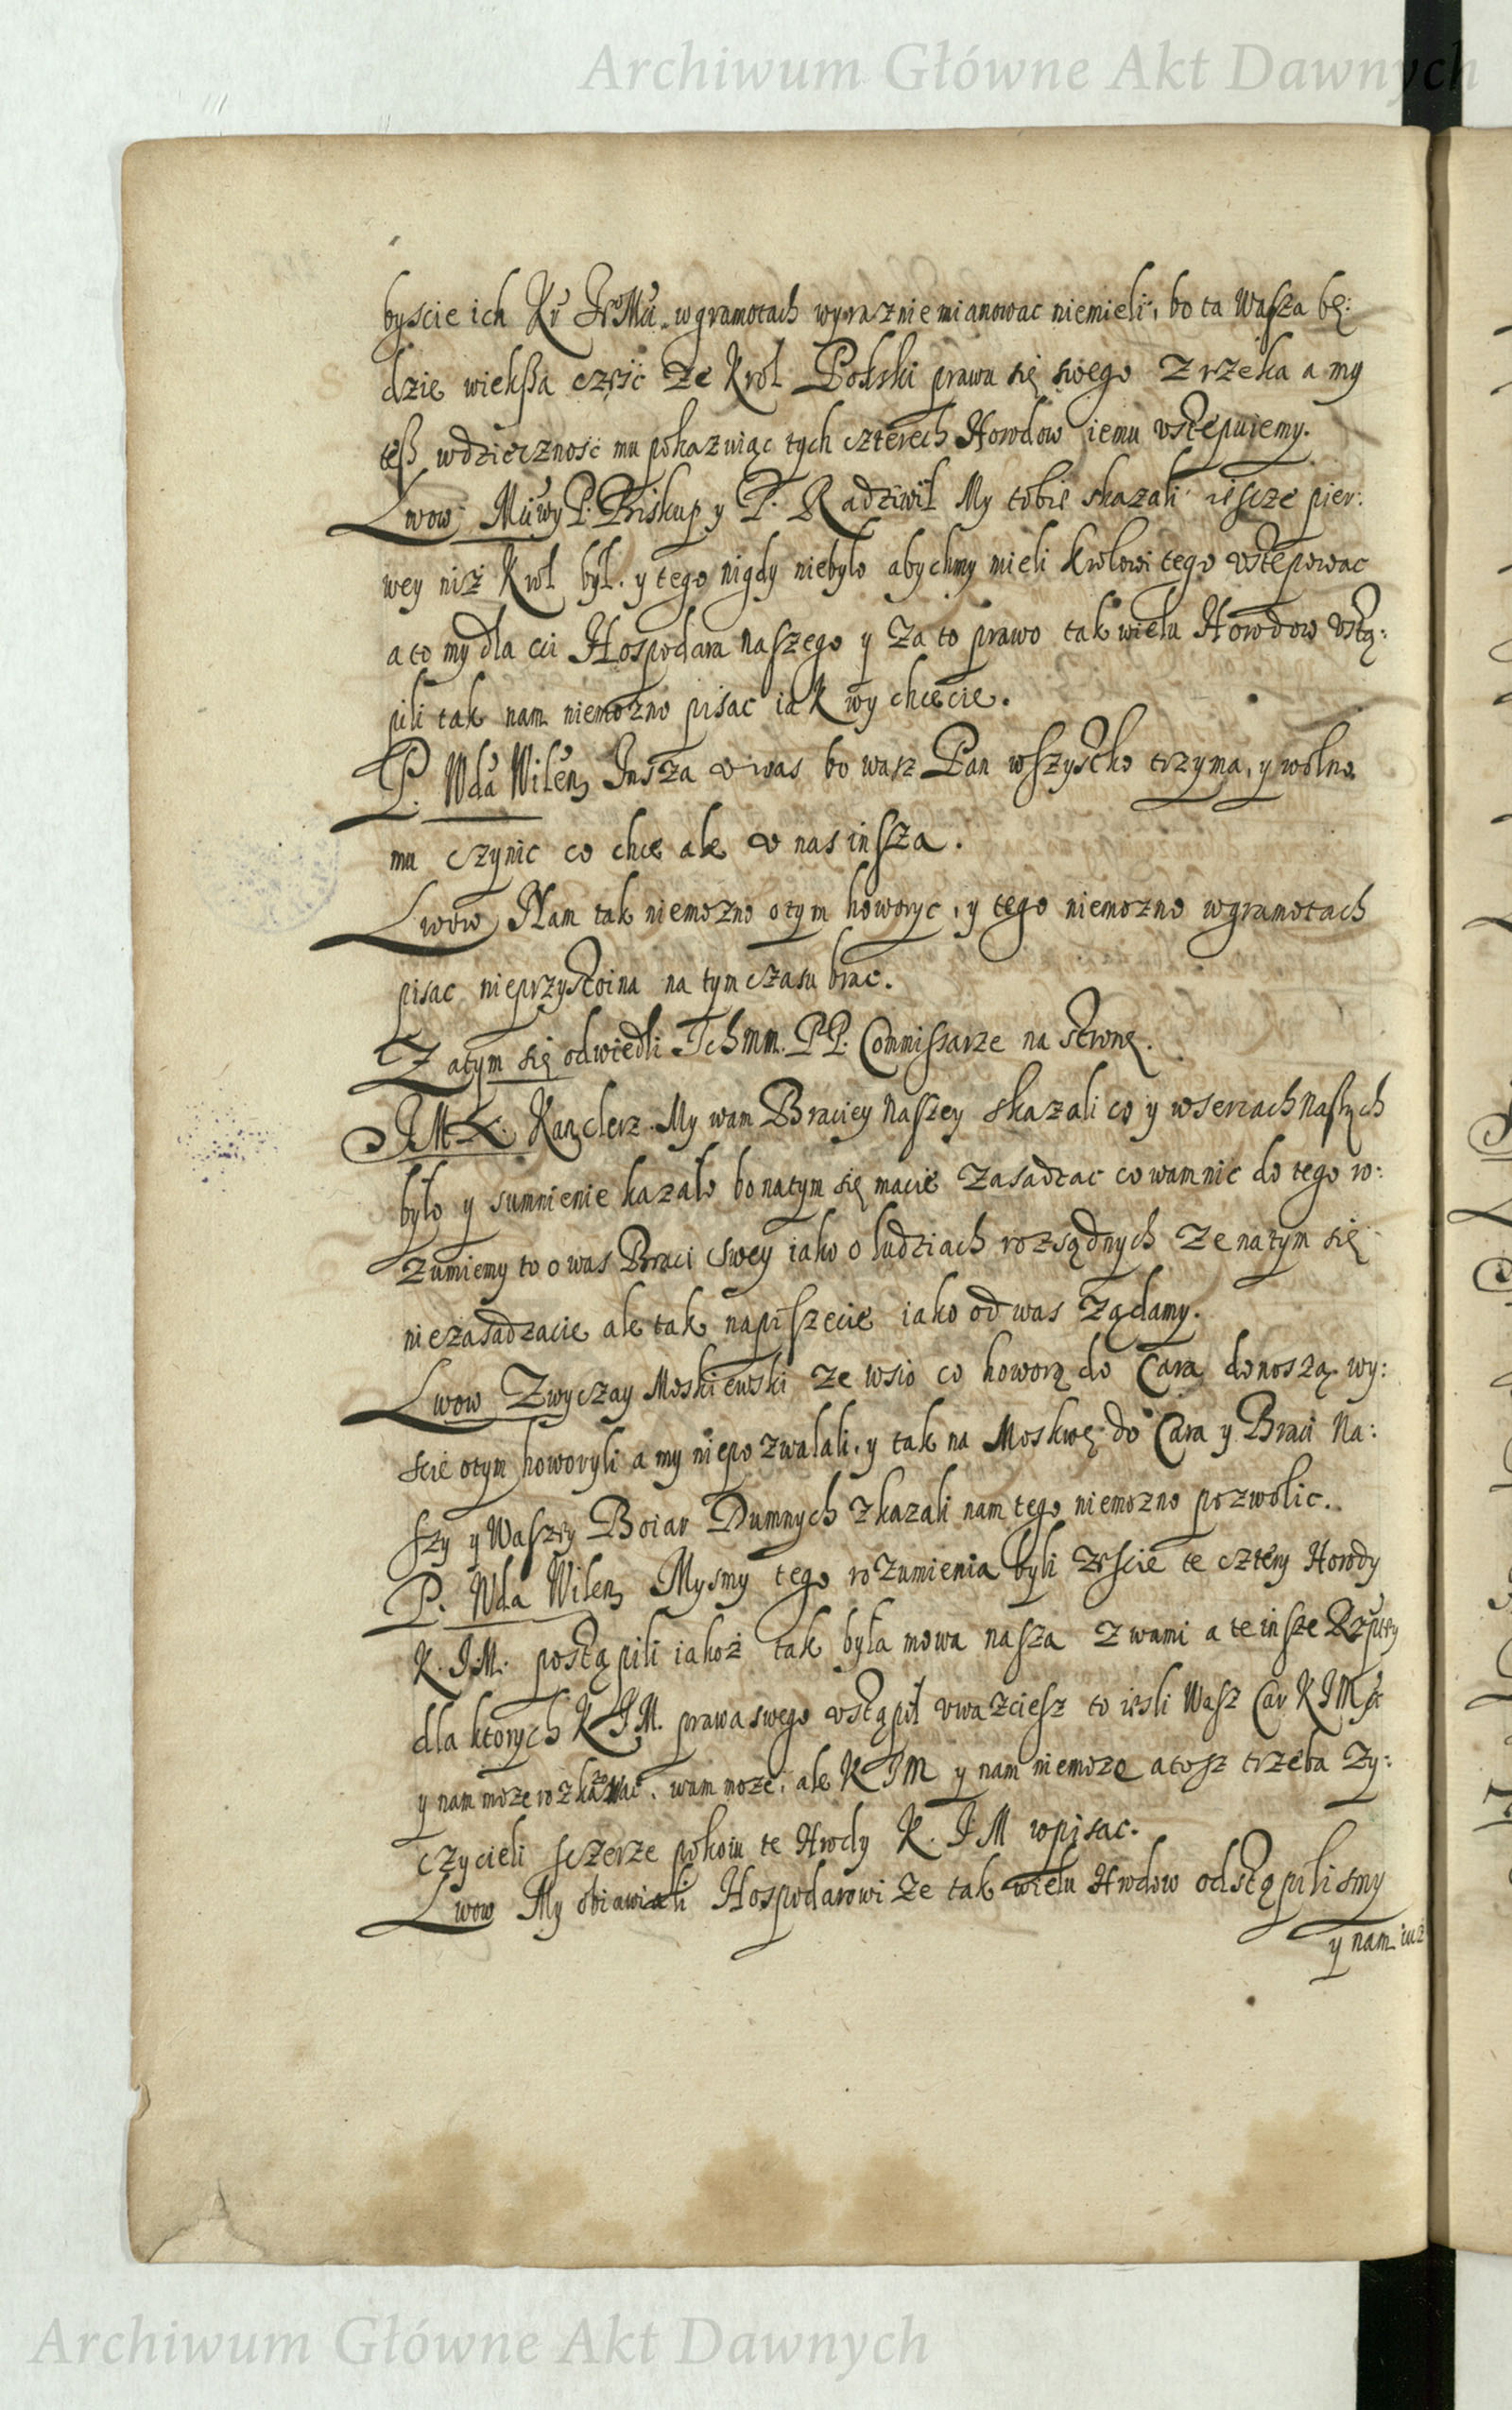 Archiwum Główne Akt Dawnych
byscie ich Kr JeoMci w gramotach wyraznie mianowac niemieli, bo ta Wasza bę:
dzie wieksza czesc ze Krol Polski prawa się swego zrzeka a my
tesz wdziecznosc mu pokazuiąc tych czterech Horodow iemu vstepuiemy.
Lwow Mowy P. Biskup y P. Radziwił My tobie skazali iescze pier:
wey niz Krol był. y tego nigdy niebyło abychmy mieli krolowi tego vstepowac
a to my dla cci Hospodara naszego y za to prawo tak wielu Horodow vstą:
pili tak nam niemozno pisac iak wy chcecie.
P. Wda Wilen Insza v was bo wasz Pan wszystko trzyma, y wolno
mu czynic co chce ale v nas insza.
Lwow Nam tak niemozno otym howoryc, y tego niemozno wgramotach
pisac nieprzystoina na tym czasu brac.
Zatym się odwiedli Ichmm. PP. Commissarze na stronę.
JM X. Kanclerz. My wam Braciey naszey skazali co y wsercach naszych
było y sumnienie kazało bo natym się macie zasadzac co wam nic do tego ro:
zumiemy to o was Braci swey iako o ludziach rozsądnych ze natym się
niezasadzacie ale tak napiszecie iako od was ządamy.
Lwow Zwyczay Moskiewski ze wsio co howorą do Cara donoszą. wy:
scie otym howoryli a my niepozwalali. y tak na Moskwę do Cara y Braci Na:
szy y Waszey Boiar Dumnych zkazali nam tego niemozno pozwolic.
P. Wda Wilen Mysmy tego rozumienia byli zescie te cztery Horody
K. J.M. postąpili iakoż tak była mowa nasza z wami a te insze Rzptey
dla ktorych K J M. prawa swego vstąpił vwazciesz to iesli Wasz Car KJMci
y nam moze rozkazac. wam moze. ale K J M y nam niemoze a tosz trzeba zy:
czycieli sczerze pokoiu te Hrody K. J M wpisac.
Lwow My obiawiali Hospodarowi ze tak wielu Hrodow odstąpilismy
y nam iuz
Archiwum Główne Akt Dawnych